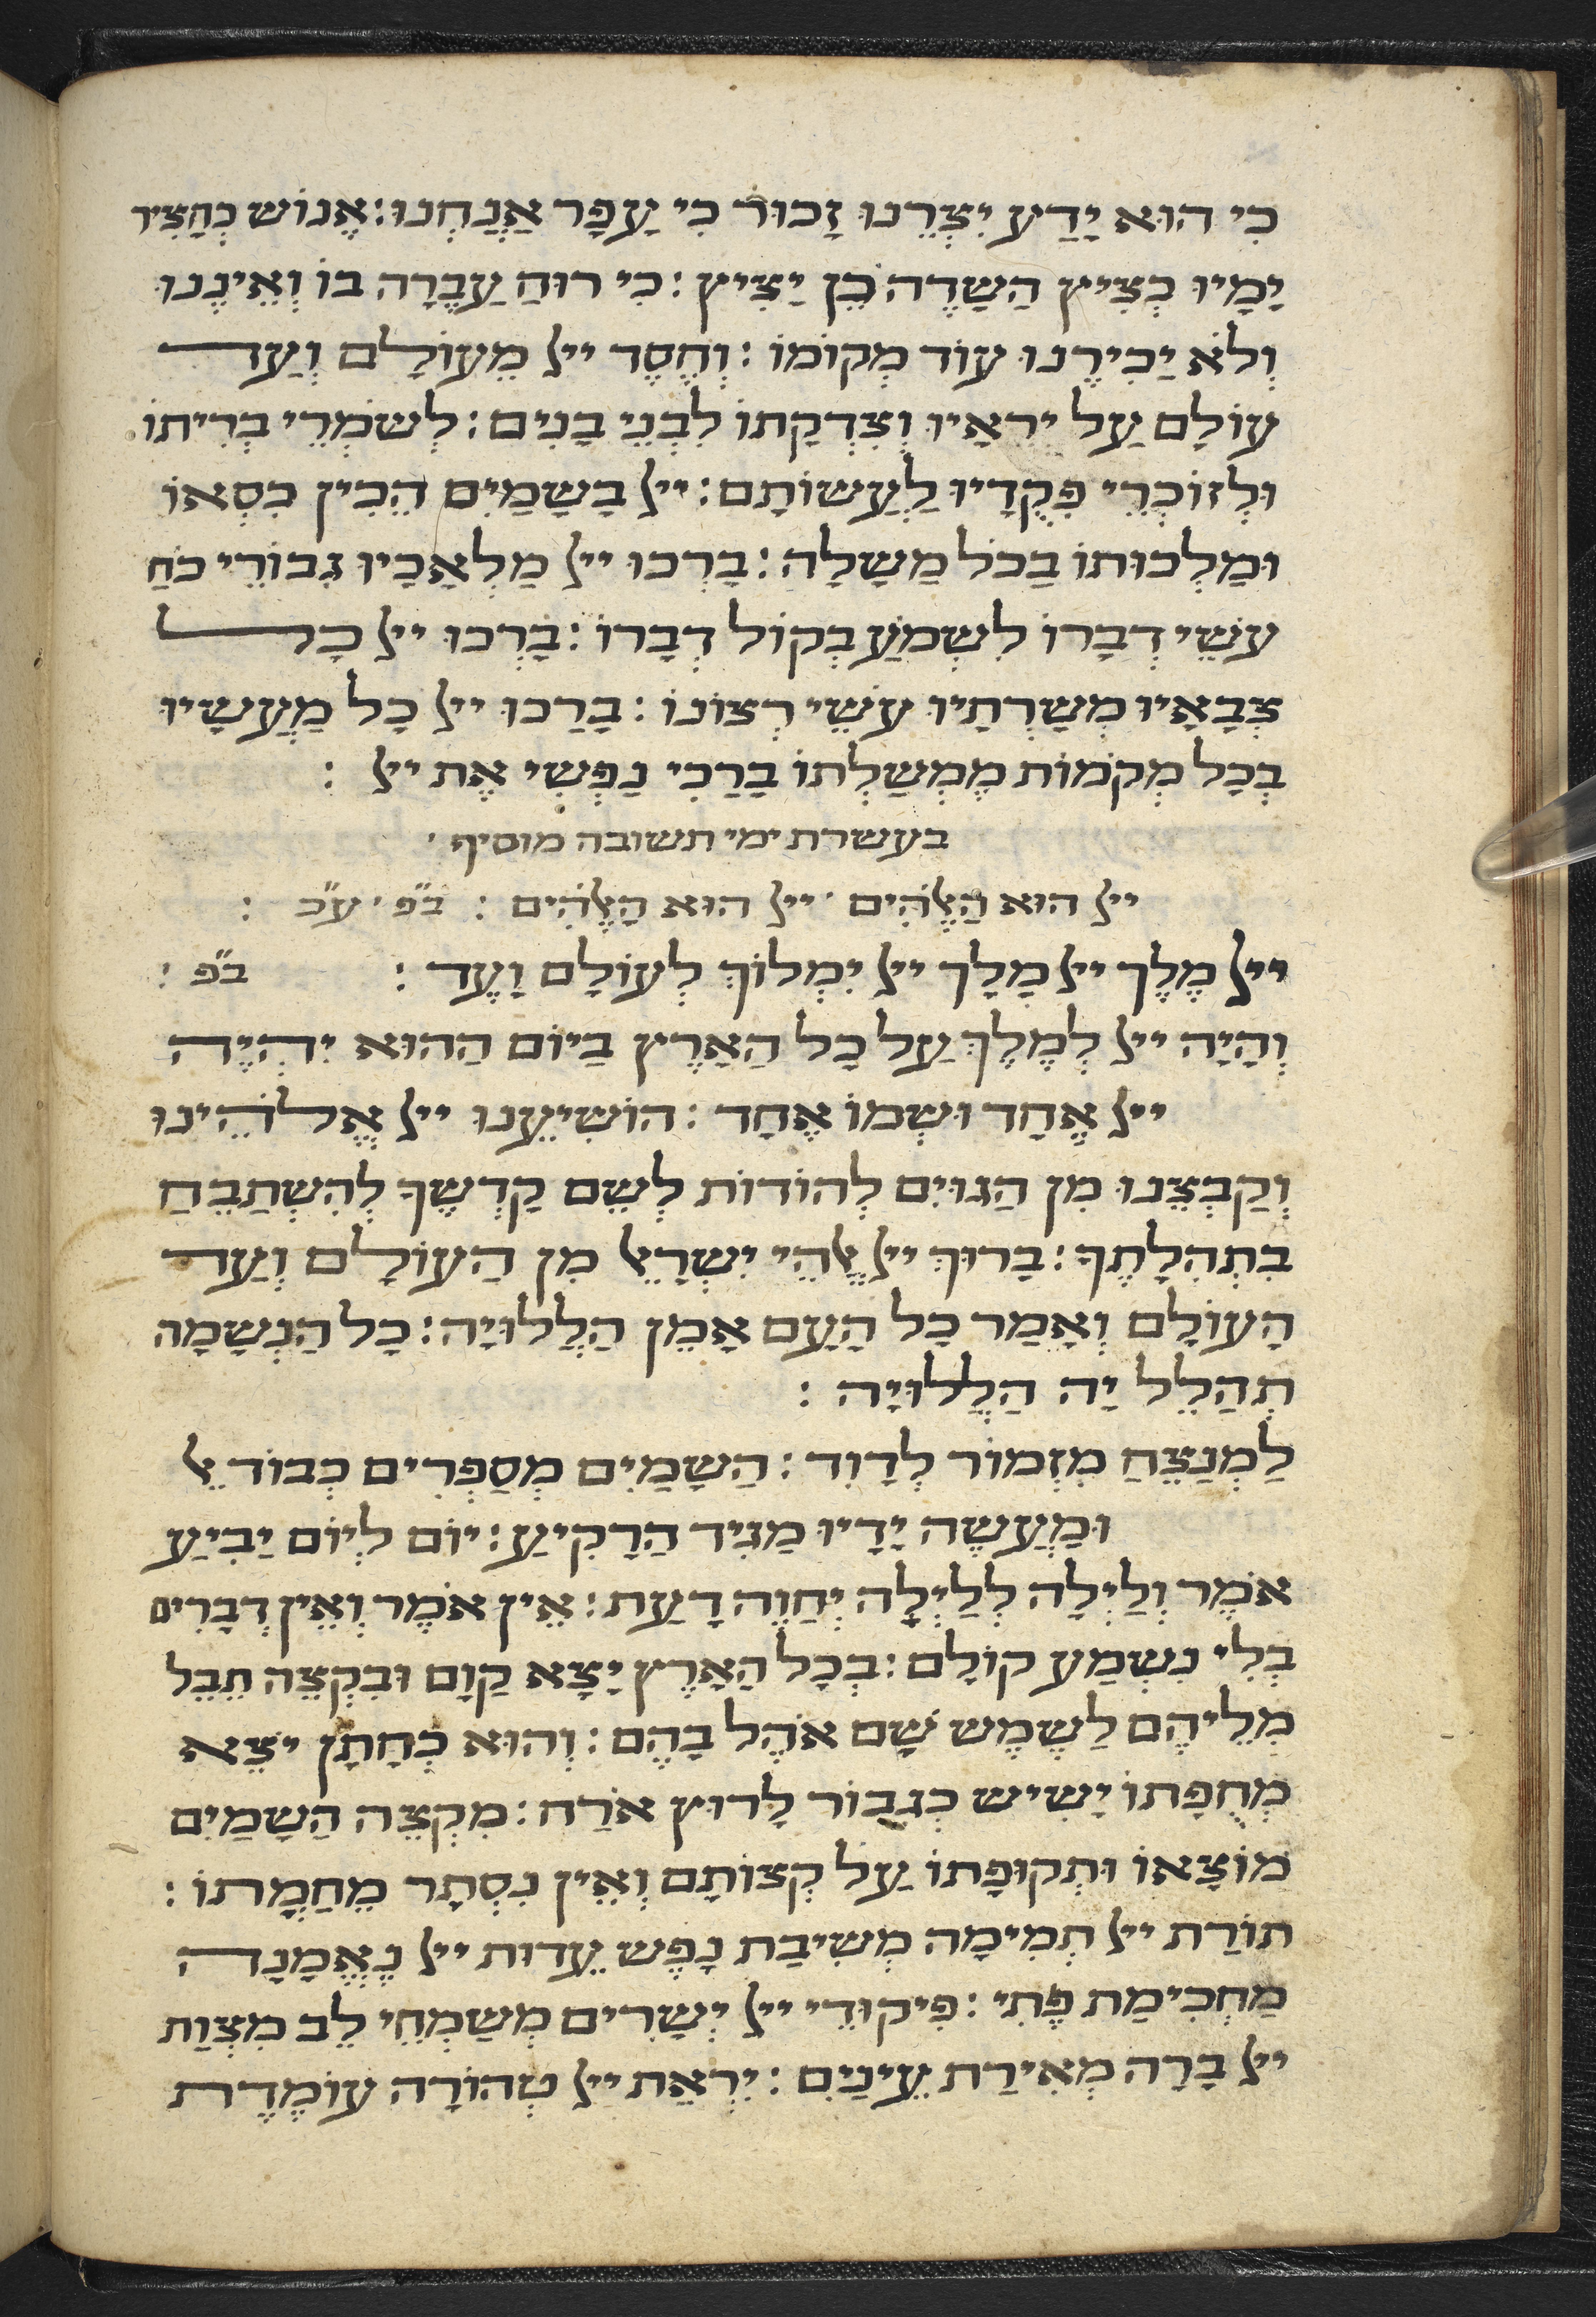 כִי הוּא יָדַע יִצְרֵנוּ זָכוּר כִי עָפָר אֲנָחְנוּ: אֱנוֹש כְחָצִיר
יָמָיו כְצִיץ הַשָדֶה כֵן יָצִיץ: כִי רוּחַ עָבְרָה בוֹ וְאֵינֶנוּ
וְלֹא יַכִירֶנוּ עוֹד מְקוֹמוֹ: וְחֶסֶד ייל מֵעוֹלָם וְעַד
עוֹלָם עַל יְרֵאָיו וְצִדְקָתוֹ לִבְנֵי בָנִים: לְשֹמְרֵי בְרִיתוֹ
וּלְזוֹכְרֵי פִקֻדָיו לַעֲשוֹתָם: ייל בַשָמַיִם הֵכִין כִסְאוֹ
וּמַלְכוּתוֹ בַכֹל מָשָלָה: בָרְכוּ ייל מַלְאָכָיו גִבוֹרֵי כֹחַ
עֹשֵי דְבָרוֹ לִשְמֹעַ בְקוֹל דְבָרוֹ: בָרְכוּ ייל כָל
צְבָאָיו מְשָרְתָיו עֹשֵי רְצוֹנוֹ: בָרְכוּ ייל כָל מַעֲשָיו
בְכָל מְקֹמוֹת מֶמְשַלְתוֹ בָרְכִי נַפְשִי אֶת ייל :
בעשרת ימי תשובה מוסיף ׳
ייל הוּא הָאֱלֹהִים ׳ ייל הוּא הָאֱלֹהִים : ב״פ ׳ ע״כ :
ייל מֶלֶך ייל מָלָך ייל יִמְלוֹךְ לְעוֹלָם וָעֶד : ב״פ :
וְהָיָה ייל לְמֶלֶךְ עַל כָל הָאָרֶץ בַיוֹם הַהוּא יִהְיֶה
ייל אֶחָד וּשְמוֹ אֶחָד: הוֹשִיעֵנוּ ייל אֱלֹהֵינוּ
וְקַבְצֵנוּ מִן הַגוֹיִם לְהוֹדוֹת לְשֵם קָדְשֶךָ לְהִשְתַבֵחַ
בִתְהִלָתֶךָ: בָרוּךְ ייל אֱלֹהֵי יִשְרָאֵל מִן הָעוֹלָם וְעַד
הָעוֹלָם וְאָמַר כָל הָעָם אָמֵן הַלֲלוּיָה: כָל הַנְשָמָה
תְהַלֵל יָה הַלֲלוּיָה :
לַמְנַצֵחַ מִזְמוֹר לְדָוִד: הַשָמַיִם מְסַפְרִים כְבוֹד אֵל
וּמַעֲשֶה יָדָיו מַגִיד הָרָקִיעַ: יוֹם לְיוֹם יַבִיעַ
אֹמֶר וְלַיְלָה לְלַיְלָה יְחַוֶה דָעַת: אֵין אֹמֶר וְאֵין דְבָרִים
בְלִי נִשְמַע קוֹלָם: בְכָל הָאָרֶץ יָצָא קַוָם וּבִקְצֵה תֵבֵל
מִלֵיהֶם לַשֶמֶש שָם אֹהֶל בָהֶם: וְהוּא כְחָתָן יֹצֵא
מֵחֻפָתוֹ יָשִיש כְגִבוֹר לָרוּץ אֹרַח: מִקְצֵה הַשָמַיִם
מוֹצָאוֹ וּתְקוּפָתוֹ עַל קְצוֹתָם וְאֵין נִסְתָר מֵחַמָתוֹ:
תוֹרַת ייל תְמִימָה מְשִיבַת נָפֶש עֵדוּת ייל נֶאֱמָנָה
מַחְכִימַת פֶתִי: פִיקוּדֵי ייל יְשָרִים מְשַמְחֵי לֵב מִצְוַת
ייל בָרָה מְאִירַת עֵינַיִם: יִרְאַת ייל טְהוֹרָה עוֹמֶדֶת